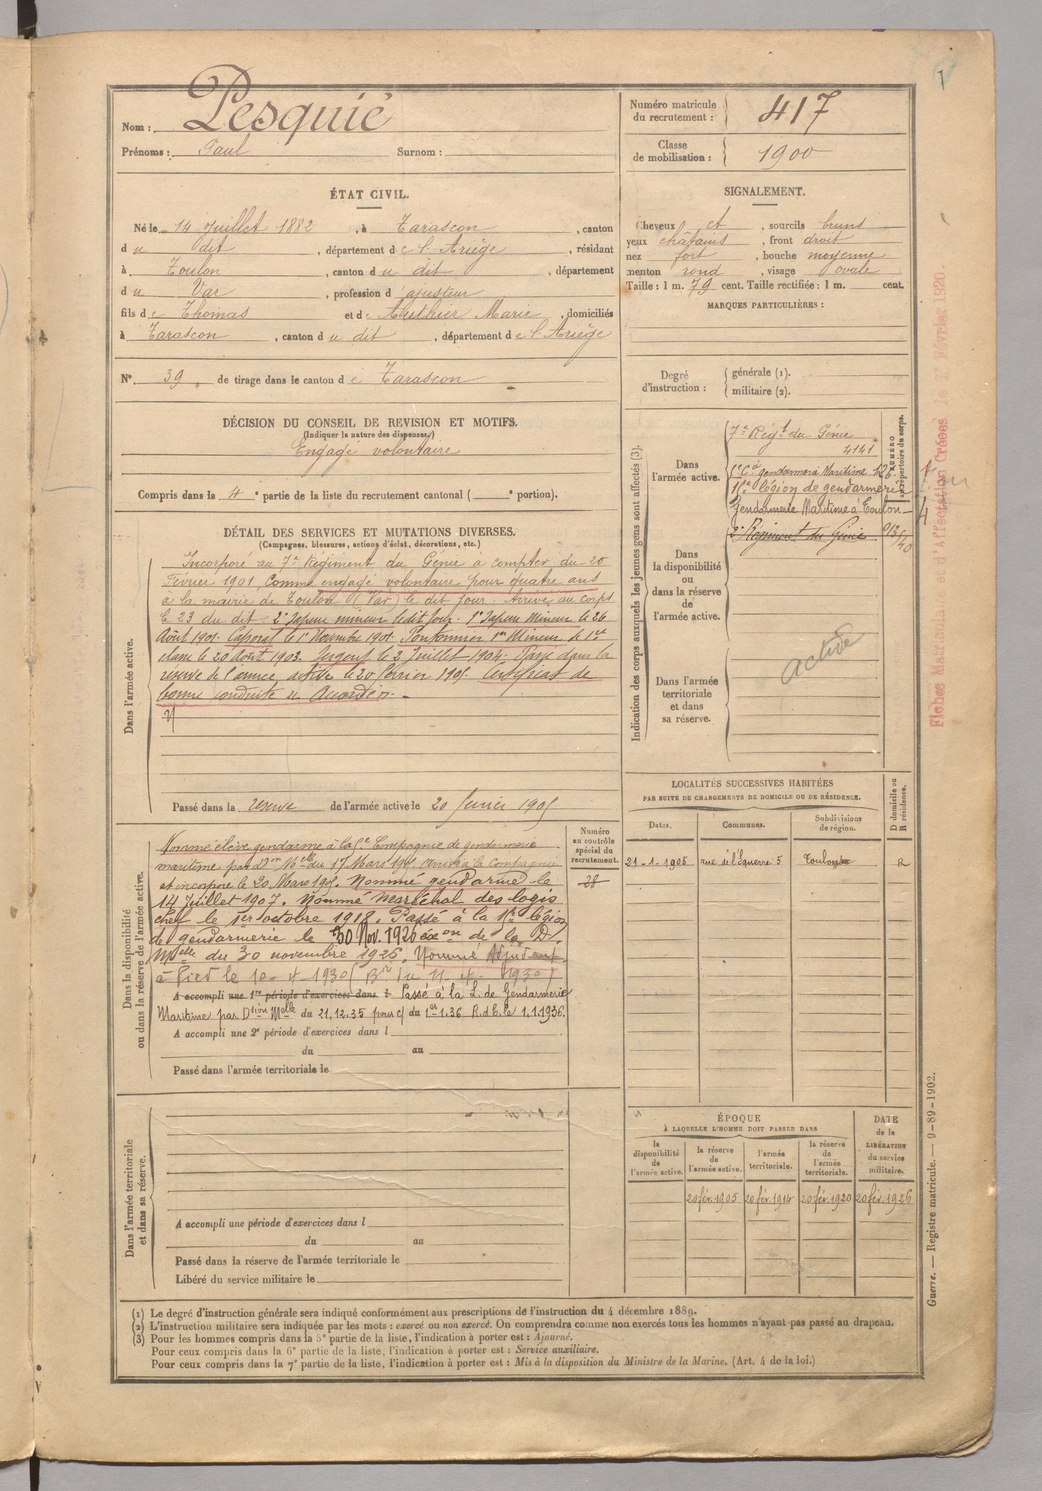 Nom : Pesquié
Prénoms : Paul Surnom :
Numéro matricule du recrutement : 417
Classe de mobilisation : 1900
ÉTAT CIVIL.
Né le 14 Juillet 1882, à Tarascon, canton
du dit, département de l'Ariège, résidant
à Toulon, canton du dit, département
du Var, profession d'ajusteur
fils de Thomas et de Authier Marie, domiciliés
à Tarascon, canton du dit, département de l'Ariège
N° 39 de tirage dans le canton de Tarascon
SIGNALEMENT.
Cheveux et, sourcils bruns
yeux châtains, front droit
nez fort, bouche moyenne
menton rond, visage ovale
Taille : 1 m. 79 cent. Taille rectifiée : 1 m. cent.
MARQUES PARTICULIÈRES :
Degré d'instruction : générale (1).
militaire (2).
DÉCISION DU CONSEIL DE REVISION ET MOTIFS.
(Indiquer la nature des dispenses.)
Engagé volontaire
Compris dans la 4e partie de la liste du recrutement cantonal ( e portion).
DÉTAIL DES SERVICES ET MUTATIONS DIVERSES.
(Campagnes, blessures, actions d'éclat, décorations, etc.)
Dans l'armée active.
Incorporé au 7e Régiment du Génie à compter du 20
Février 1901, Comme engagé volontaire pour quatre ans
à la mairie de Toulon (Var) le dit jour. Arrivé au corps
le 23 du dit. 2e Sapeur mineur le dit jour. 1er Sapeur Mineur le 26
Août 1901. Caporal le 1er Novembre 1901. Pontonnier 1er Mineur de 1re
classe le 20 août 1903. Sergent le 2 Juillet 1904. Passé dans la
réserve de l'armée active le 20 février 1905. Certificat de
bonne conduite "Accordé".
Passé dans la réserve de l'armée active le 20 février 1905
Indication des corps auxquels les jeunes gens sont affectés (3).
NUMÉRO au répertoire du corps.
Dans l'armée active.
7e Régt du Génie
4141
Cie gendarmerie Maritime 126
légion de gendarmerie
Gendarmerie Maritime à Toulon
Dans la disponibilité ou dans la réserve de l'armée active.
2e Régiment du Génie
Dans l'armée territoriale et dans sa réserve.
active
Fiches Matricule et d'Affectation Créées le Février 1920.
Dans la disponibilité ou dans la réserve de l'armée active.
Numéro au contrôle spécial du recrutement.
28
Nommé élève gendarme à la 5e Compagnie de gendarmerie
maritime par Don Melle du 17 Mars 1905 arrivé à la Compagnie
et incorporé le 20 Mars 1905. Nommé gendarme le
14 Juillet 1907. Nommé Maréchal des logis
chef le 1er octobre 1918. Passé à la légion
de gendarmerie le 30 Nov. 1926 de la D.
Melle du 30 novembre 1926. Nommé Adjudant
à Pied le 10-4-1930
A accompli une 1re période d'exercices dans l Passé à la L. de Gendarmerie
Maritime par Dsion Melle du 21.12.35 pour c/ du 1er.1.36 R.d.C. le 1.1.1936.
A accompli une 2e période d'exercices dans l
du au
Passé dans l'armée territoriale le
LOCALITÉS SUCCESSIVES HABITÉES
PAR SUITE DE CHANGEMENTS DE DOMICILE OU DE RÉSIDENCE.
Dates. Communes. Subdivisions de région. D domicile ou R résidence.
21-1-1905 rue de l'Équerre 5 Toulon R
Dans l'armée territoriale et dans sa réserve.
A accompli une période d'exercices dans l
du au
Passé dans la réserve de l'armée territoriale le
Libéré du service militaire le
ÉPOQUE
À LAQUELLE L'HOMME DOIT PASSER DANS
la disponibilité de l'armée active. la réserve de l'armée active. l'armée territoriale. la réserve de l'armée territoriale. DATE de la LIBÉRATION du service militaire.
20 fév. 1905 20 fév. 1914 20 fév. 1920 20 fév. 1926
(1) Le degré d'instruction générale sera indiqué conformément aux prescriptions de l'instruction du 4 décembre 1889.
(2) L'instruction militaire sera indiquée par les mots : exercé ou non exercé. On comprendra comme non exercés tous les hommes n'ayant pas passé au drapeau.
(3) Pour les hommes compris dans la 5e partie de la liste, l'indication à porter est : Ajourné.
Pour ceux compris dans la 6e partie de la liste, l'indication à porter est : Service auxiliaire.
Pour ceux compris dans la 7e partie de la liste, l'indication à porter est : Mis à la disposition du Ministre de la Marine. (Art. 4 de la loi.)
Guerre. — Registre matricule. — 9-89-1902.